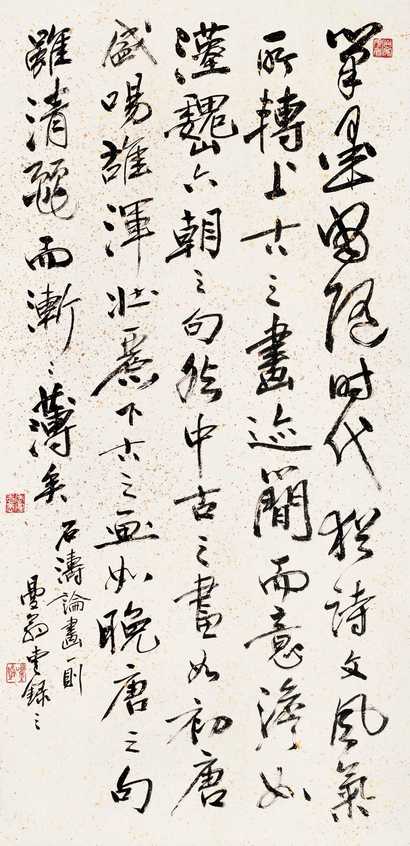 筆墨當隨时代猶詩文風氣
所轉上古之畫迹簡而意澹如
漢魏六朝之句然中古之畫如初唐
盛唐雄渾壯麗下古之畫如晚唐之句
雖清麗而漸々薄矣
石濤論畫一則
曼翁書錄之